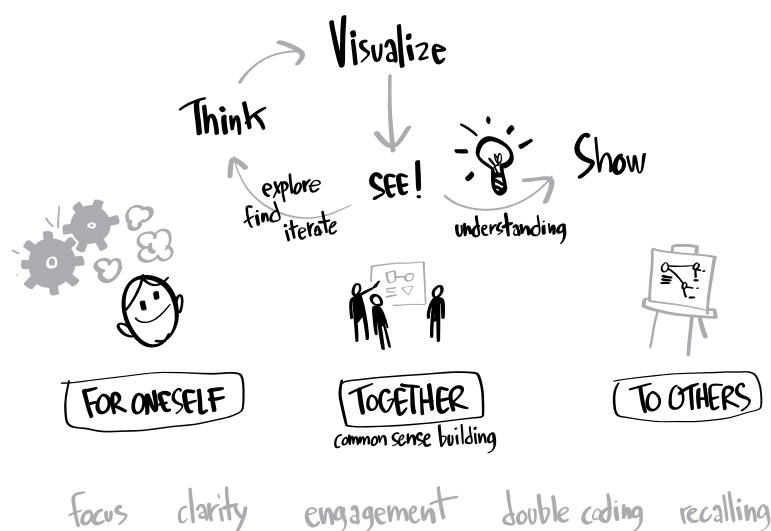 Visualize
Think
SEE!
Show
explore
find
iterate
understanding
FOR ONESELF
TOGETHER
TO OTHERS
common sense building
focus clarity engagement double coding recalling